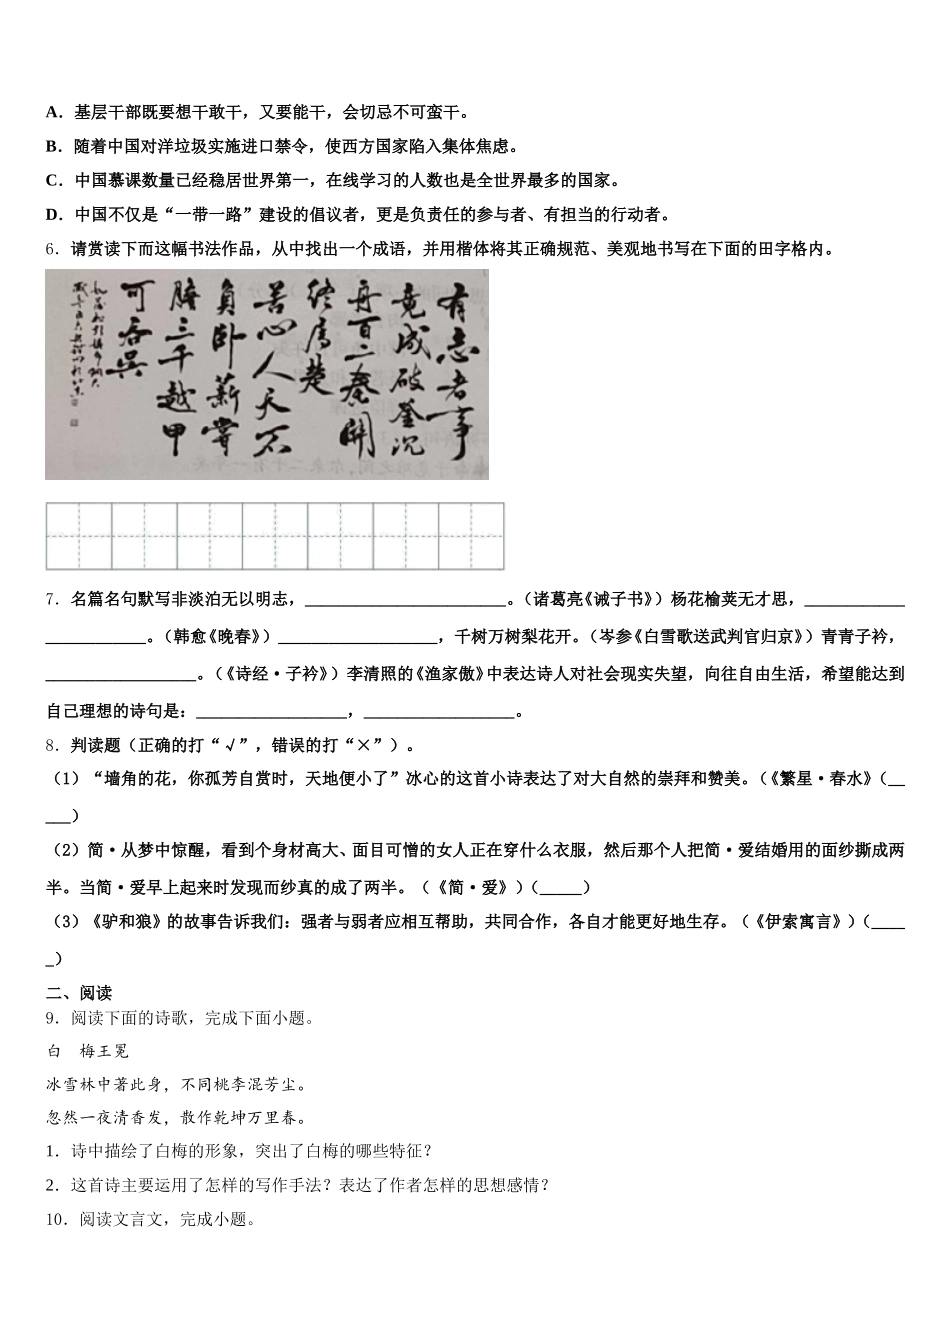 A．基层干部既要想干敢干，又要能干，会切忌不可蛮干。
B．随着中国对洋垃圾实施进口禁令，使西方国家陷入集体焦虑。
C．中国慕课数量已经稳居世界第一，在线学习的人数也是全世界最多的国家。
D．中国不仅是“一带一路”建设的倡议者，更是负责任的参与者、有担当的行动者。
6．请赏读下而这幅书法作品，从中找出一个成语，并用楷体将其正确规范、美观地书写在下面的田字格内。
有志者事
竟成破釜沉
舟百二秦關
终属楚
苦心人天不
負卧薪嘗
膽三千越甲
可吞吳
7．名篇名句默写非淡泊无以明志，________________________。（诸葛亮《诫子书》）杨花榆荚无才思，____________
____________。（韩愈《晚春》）___________________，千树万树梨花开。（岑参《白雪歌送武判官归京》）青青子衿，
__________________。（《诗经·子衿》）李清照的《渔家傲》中表达诗人对社会现实失望，向往自由生活，希望能达到
自己理想的诗句是：__________________，__________________。
8．判读题（正确的打“√”，错误的打“×”）。
（1）“墙角的花，你孤芳自赏时，天地便小了”冰心的这首小诗表达了对大自然的崇拜和赞美。（《繁星·春水》（__
___）
（2）简·从梦中惊醒，看到个身材高大、面目可憎的女人正在穿什么衣服，然后那个人把简·爱结婚用的面纱撕成两
半。当简·爱早上起来时发现而纱真的成了两半。（《简·爱》）（_____）
（3）《驴和狼》的故事告诉我们：强者与弱者应相互帮助，共同合作，各自才能更好地生存。（《伊索寓言》）（____
_）
二、阅读
9．阅读下面的诗歌，完成下面小题。
白　梅王冕
冰雪林中著此身，不同桃李混芳尘。
忽然一夜清香发，散作乾坤万里春。
1．诗中描绘了白梅的形象，突出了白梅的哪些特征？
2．这首诗主要运用了怎样的写作手法？表达了作者怎样的思想感情？
10．阅读文言文，完成小题。